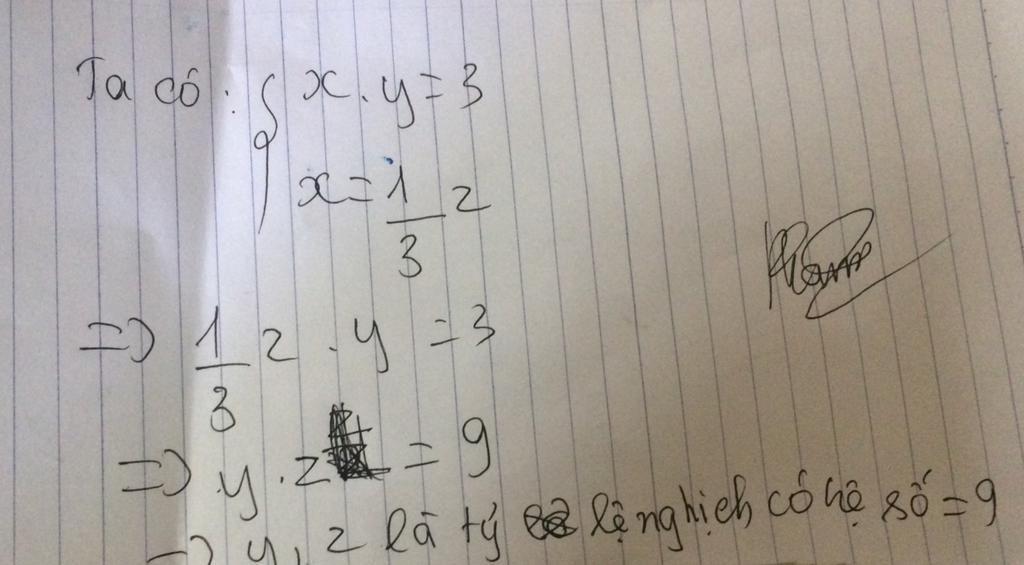 Ta có: { x.y = 3
x = 1/3 z
=> 1/3 z . y = 3
=> y.z = 9
=> y, z là tỷ lệ nghịch có hệ số = 9